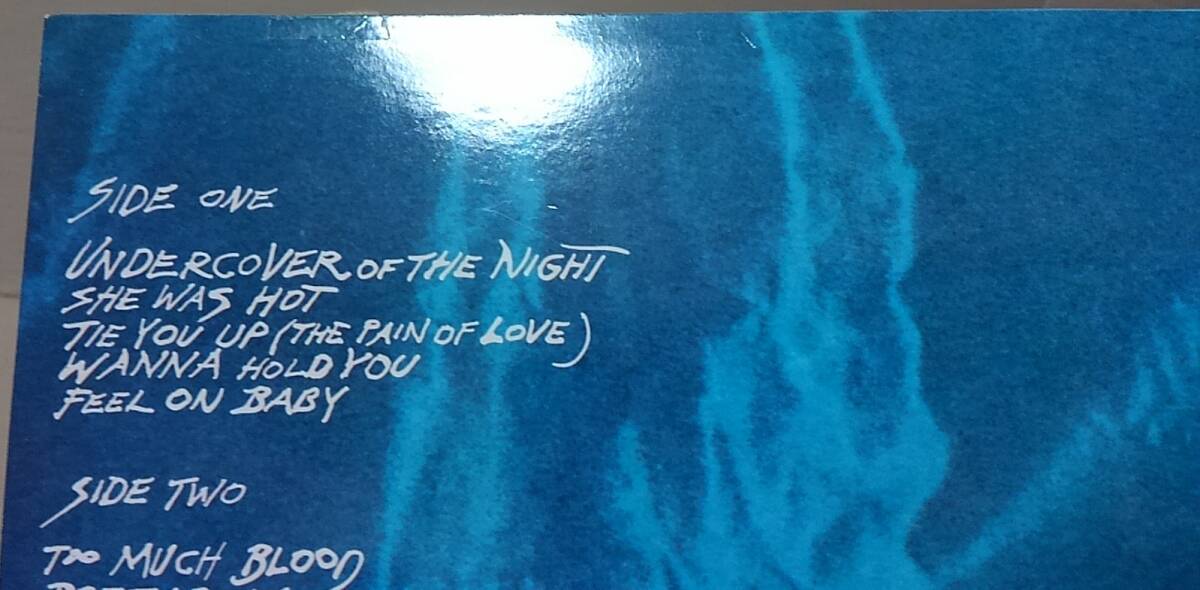 SIDE ONE
UNDERCOVER OF THE NIGHT
SHE WAS HOT
TIE YOU UP (THE PAIN OF LOVE)
WANNA HOLD YOU
FEEL ON BABY
SIDE TWO
TOO MUCH BLOOD